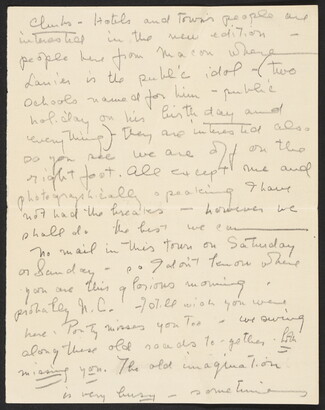 Clubs - Hotels and towns people are
interested in the new edition -
people here from Macon where
Lanier is the public idol - (two
schools named for him - public
holiday on his birthday and
everything) they are interested also
So you see we are off on the
right foot. All except me and
photographically speaking I have
not had the breaks - however we
shall do the best we can
No mail in this town on Saturday
or Sunday - so I don't know where
you are this glorious morning.
probably N.C. - still wish you were
here. Ponty misses you too - we swing
along these old roads to-gether. both
missing you. The old imagination
is very busy - sometimes